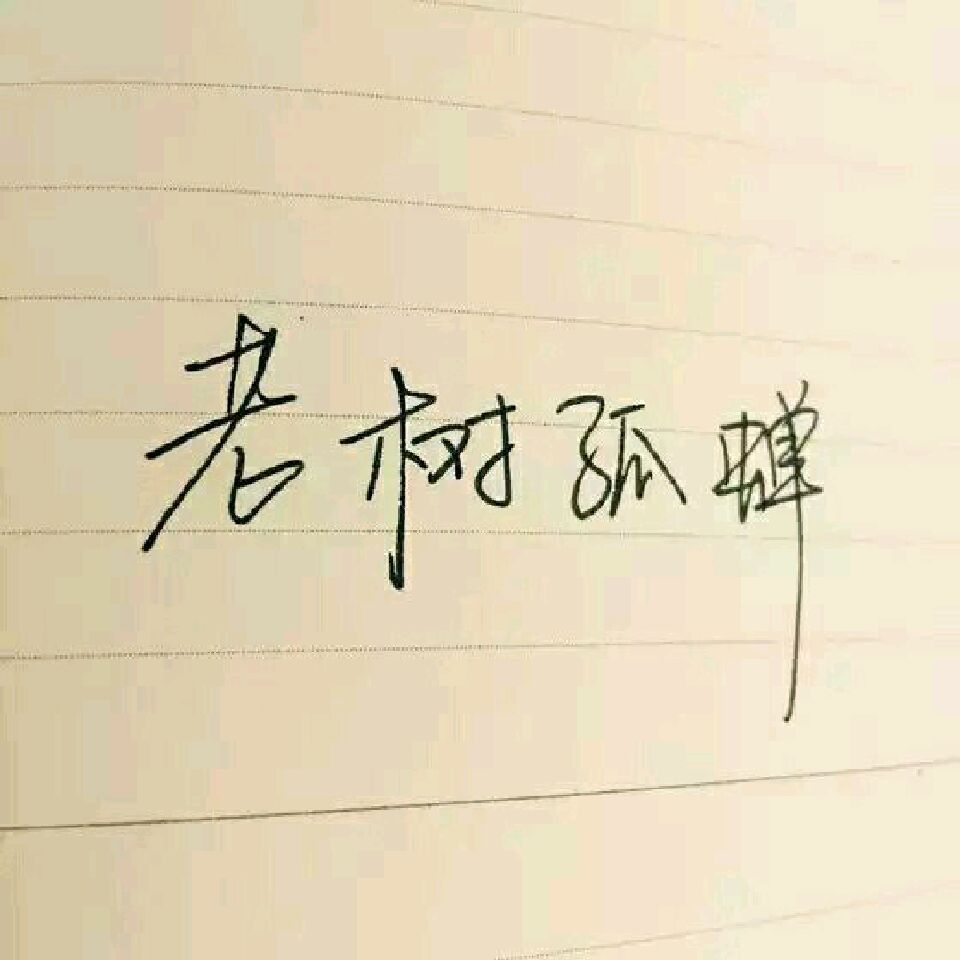 老树孤蝉